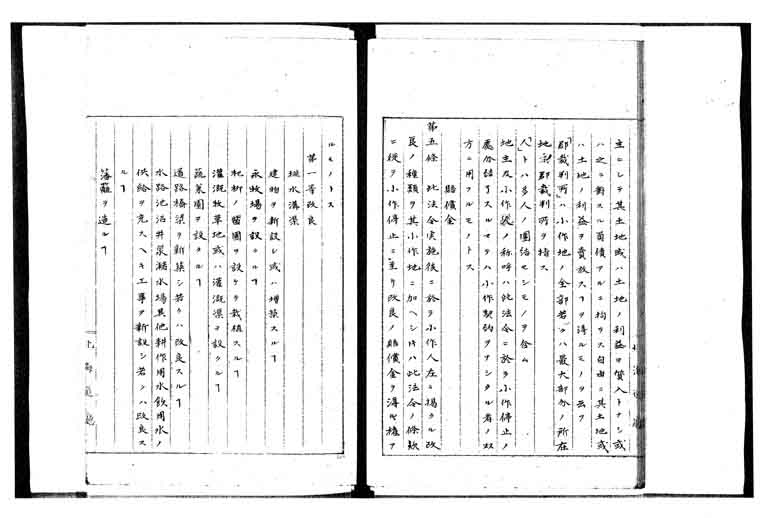 主ニシテ其土地或ハ土地ノ利益ヲ質入トナシ或
ハ之ニ対スル負債アルニ拘ラス自由ニ其土地或
ハ土地ノ利益ヲ賣放スヿヲ得ルモノヲ云フ
「郡裁判所」ハ小作地ノ全部若クハ最大部分ノ所在
地ノ郡裁判所ヲ指ス
「人」トハ多人ノ團結セシモノヲ含ム
地主及小作人ノ称呼ハ此法令ニ於テ小作停止ノ
処分結了スルマテハ小作契約ヲナシタル者ノ双
方ニ用フルモノトス
賠償金
第五條 此法令実施後ニ於テ小作人左ニ掲クル改
良ノ種類ヲ其小作地ニ加ヘシ片ハ此法令ノ條款
ニ従ヲ小作停止ニ至リ改良ノ賠償金ヲ得ル権ア
ルモノトス
第一等改良
排水溝渠
建物ヲ新設シ或ハ増築スルヿ
永牧場ヲ設クルヿ
杞柳ノ苗圃ヲ設ケテ栽植スルヿ
灌漑牧草地或ハ灌漑渠ヲ設クルヿ
蔬菜園ヲ設クルヿ
道路橋梁ヲ新築シ若クハ改良スルヿ
水路池沼井泉瀦水場其他耕作用水飲用水ノ
供給ヲ充スヘキ工事ヲ新設シ若クハ改良ス
ルヿ
藩籬ヲ造ルヿ